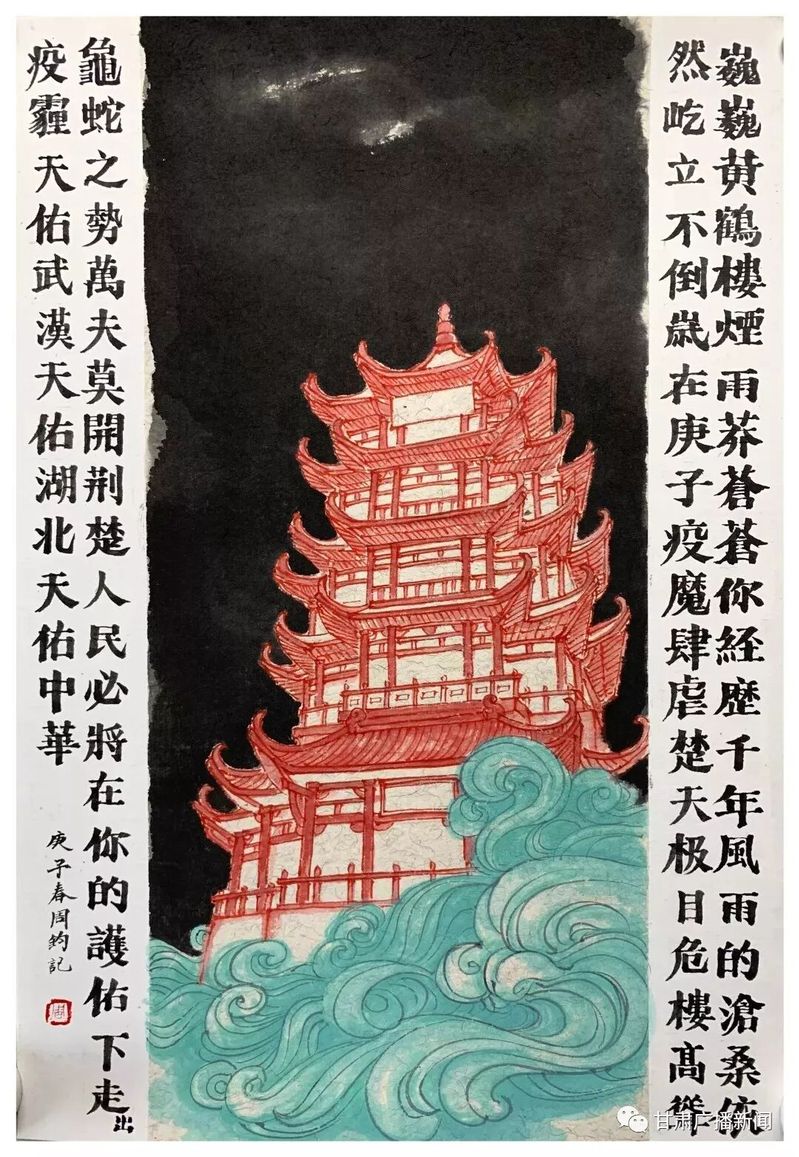 巍巍黄鶴樓煙雨莽蒼蒼你経歷千年風雨的滄桑伉
然屹立不倒歲在庚子疫魔肆虐楚天极目危樓髙聳
龜蛇之勢萬夫莫開荆楚人民必將在你的護佑下走出
疫霾天佑武漢天佑湖北天佑中華
庚子春周鈞記
周
甘肃广播新闻